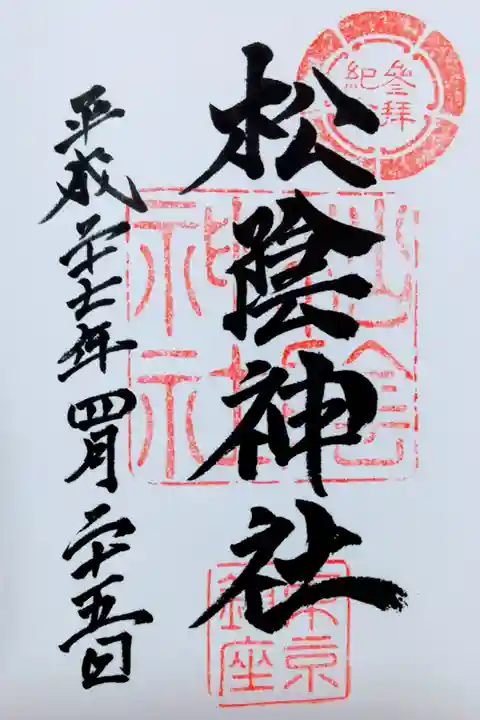 參拜
紀念
松陰神社
松陰神社
東京
鎮座
平成二十七年四月二十五日